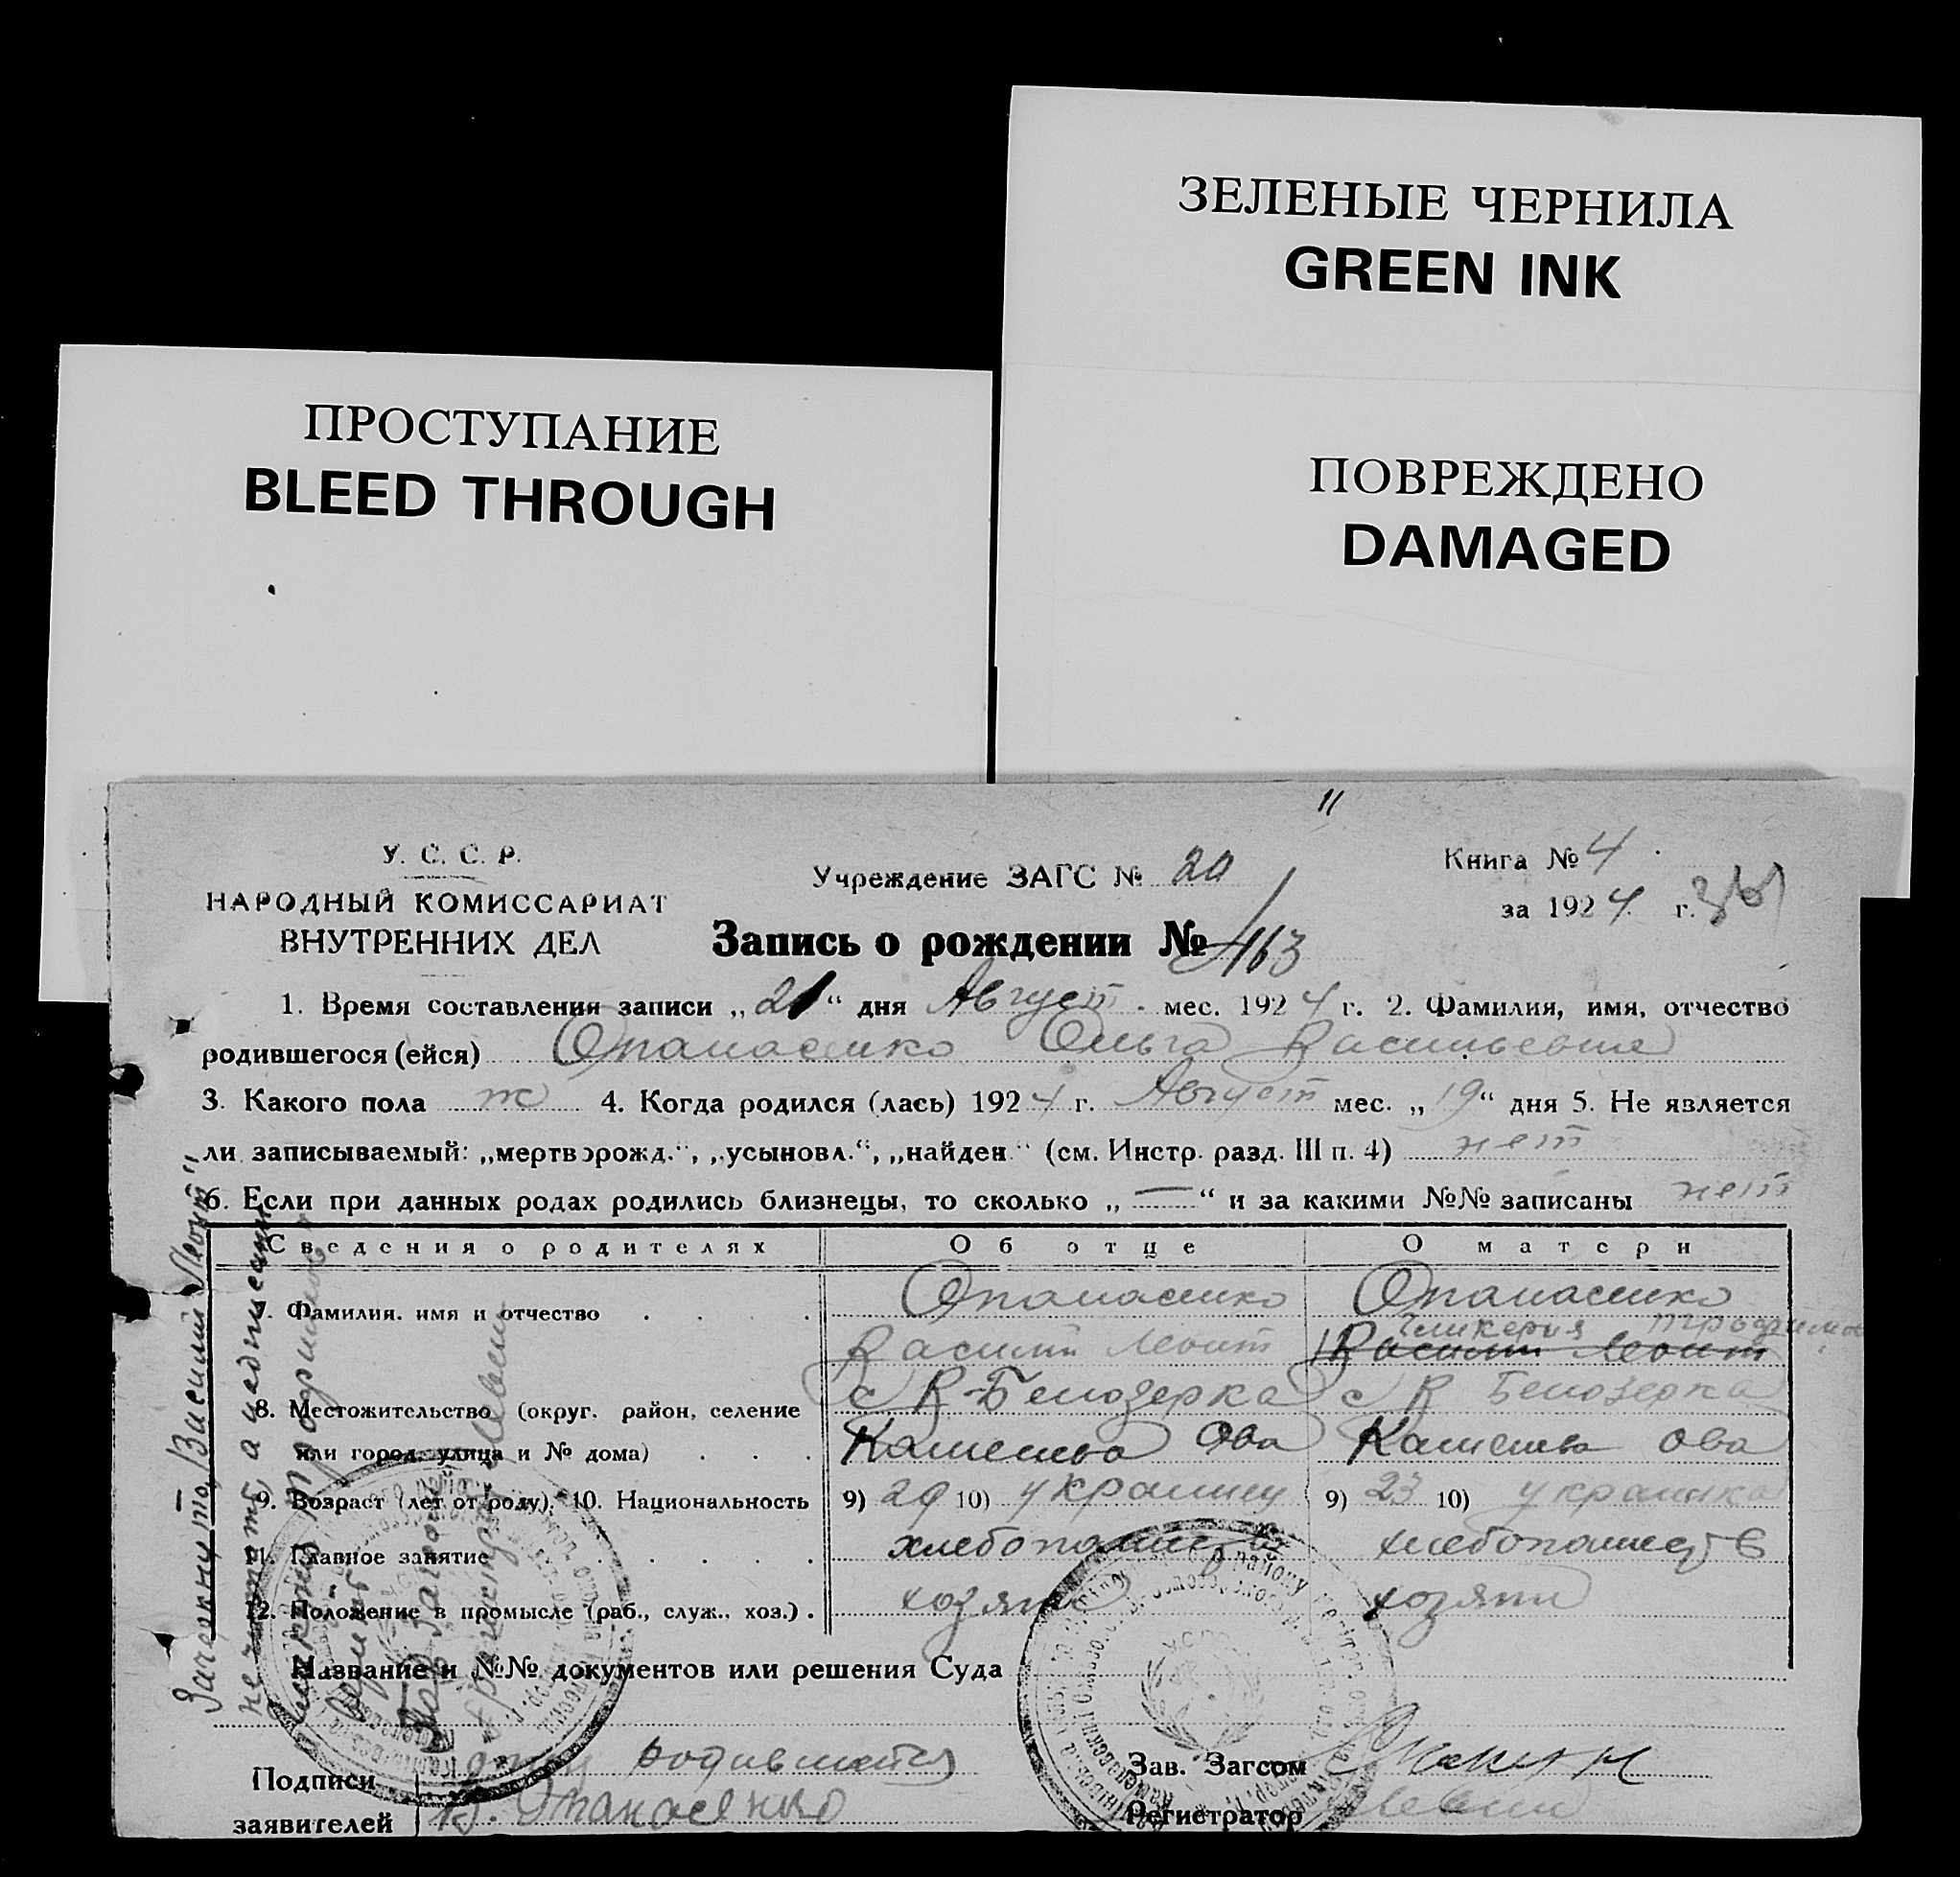 ЗЕЛЕНЫЕ ЧЕРНИЛА
GREEN INK
ПРОСТУПАНИЕ
BLEED THROUGH
ПОВРЕЖДЕНО
DAMAGED
11
У. С. С. Р.
НАРОДНЫЙ КОМИССАРИАТ
ВНУТРЕННИХ ДЕЛ
Учреждение ЗАГС № 20
Книга № 4
за 1924 г.
Запись о рождении № 463
1. Время составления записи „21“ дня Август мес. 1924 г. 2. Фамилия, имя, отчество
родившегося (ейся) Опанасенко Ольга Васильевна
3. Какого пола ж 4. Когда родился (лась) 1924 г. Август мес. „19“ дня 5. Не является
ли записываемый: „мертворожд.“, „усыновл.“, „найден.“ (см. Инстр. разд. III п. 4) нет
6. Если при данных родах родились близнецы, то сколько „—“ и за какими №№ записаны нет
Сведения о родителях Об отце О матери
7. Фамилия, имя и отчество Опанасенко Опанасенко
Василий Леонт Гликерия Трофимов
Василий Леонт
с В-Белозерка с В Белозерка
8. Местожительство (округ, район, селение
или город, улица и № дома) Каменева Ова Каменева Ова
9. Возраст (лет от роду). 10. Национальность 9) 29 10) украинец 9) 23 10) украинка
11. Главное занятие хлебопашец хлебопашец
12. Положение в промысле (раб., служ., хоз.) хозяин хозяин
Название и №№ документов или решения Суда
Зачеркнуто „Василий Леонт“
не читать, а надписанн
верно
Зав Загсом
Подписи заявителей
В. Опанасенко
Зав. Загсом
Регистратор Левин